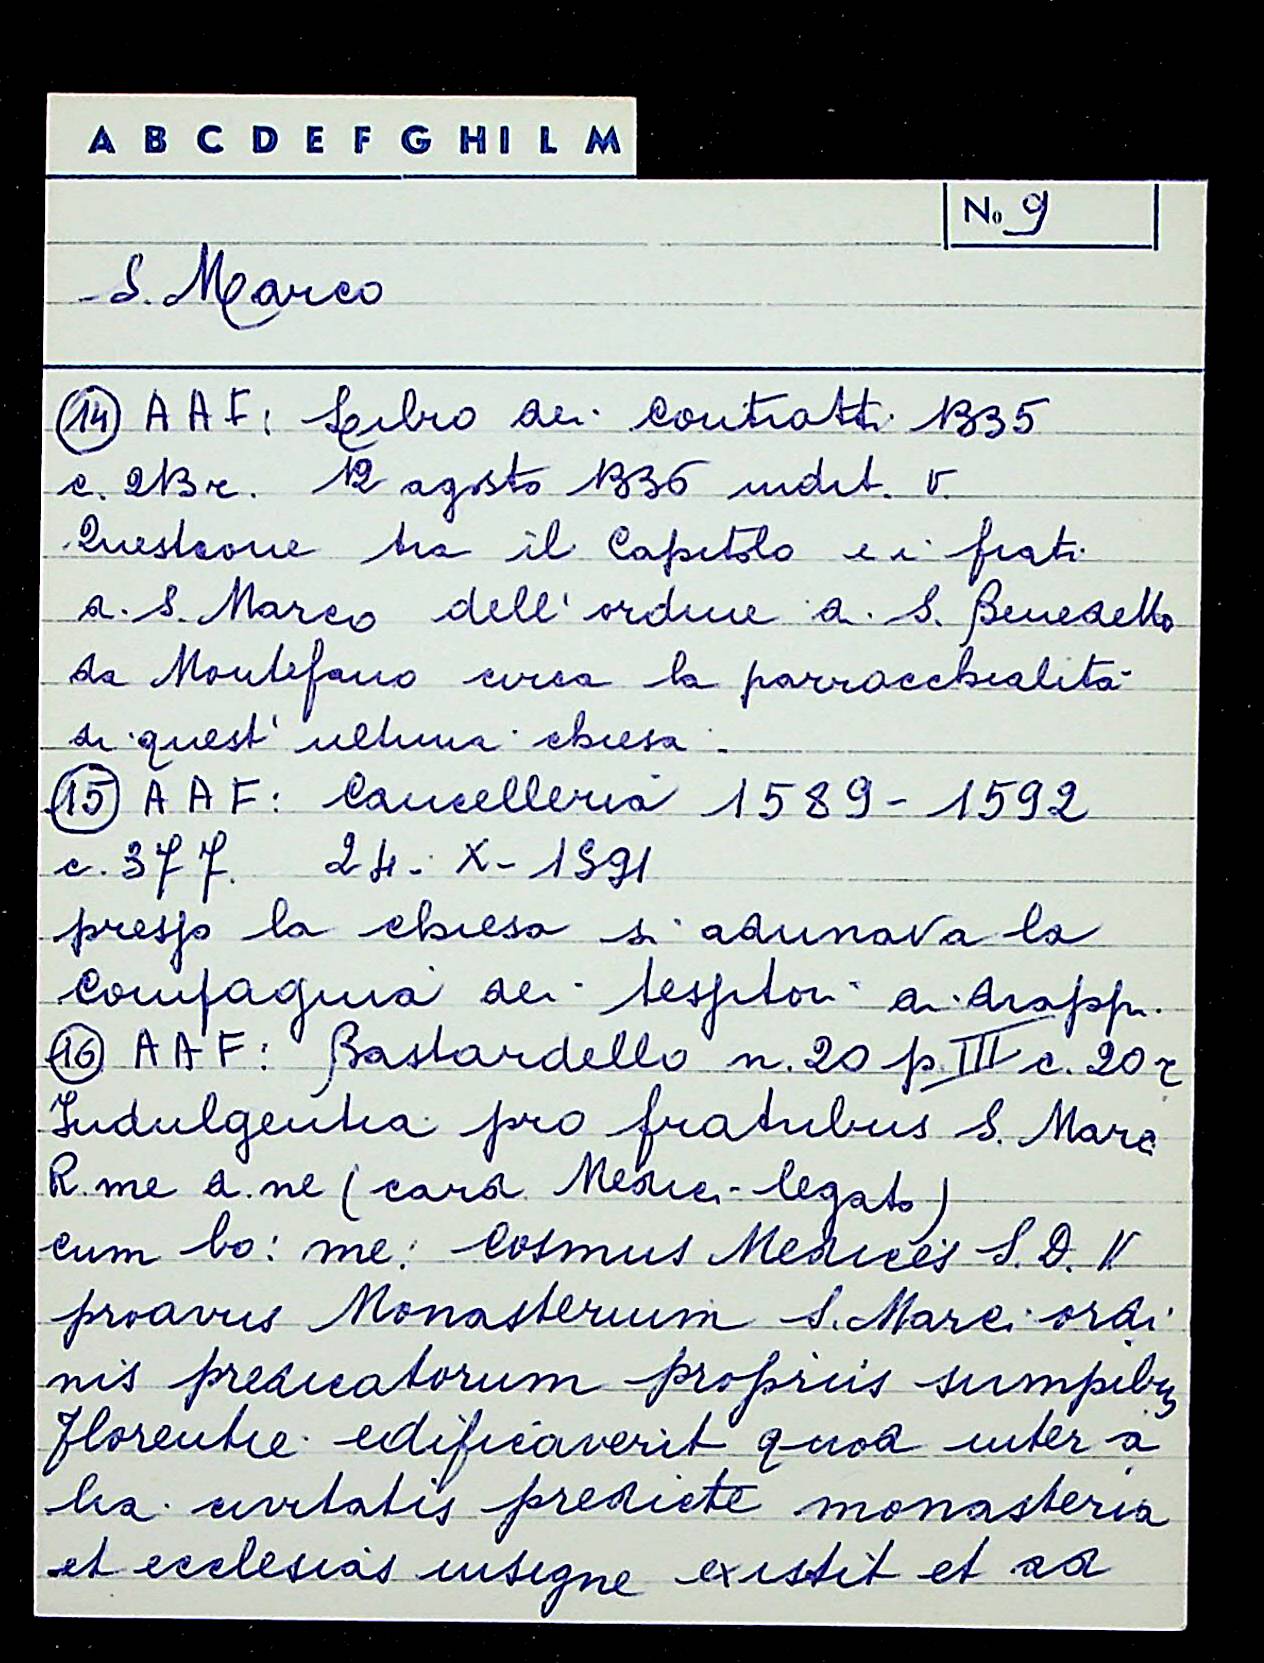 A B C D E F G H I L M
No 9
S. Marco
(14) A A F: Libro dei Contratti 1335
c. 213 r. 12 agosto 1336 indit. V.
Questione tra il Capitolo e i frati
di S. Marco dell' ordine di S. Benedetto
da Montefano circa la parrocchialità
di quest' ultima chiesa.
(15) A A F: Cancelleria 1589 - 1592
c. 377. 24 - X - 1591
presso la chiesa si adunava la
Compagnia dei tessitori di drappi.
(16) A A F: Bastardello n. 20 p. III c. 20 r
Indulgentia pro fratribus S. Marci
R.me d.ne (card. Medici - legato)
cum bo: me: Cosmus Medices S. D. V.
proavus Monasterium S. Marci ordi
nis predicatorum propriis sumpibus
Florentie edificaverit quod inter a
lia civitatis predicte monasteria
et ecclesias insigne existit et ad